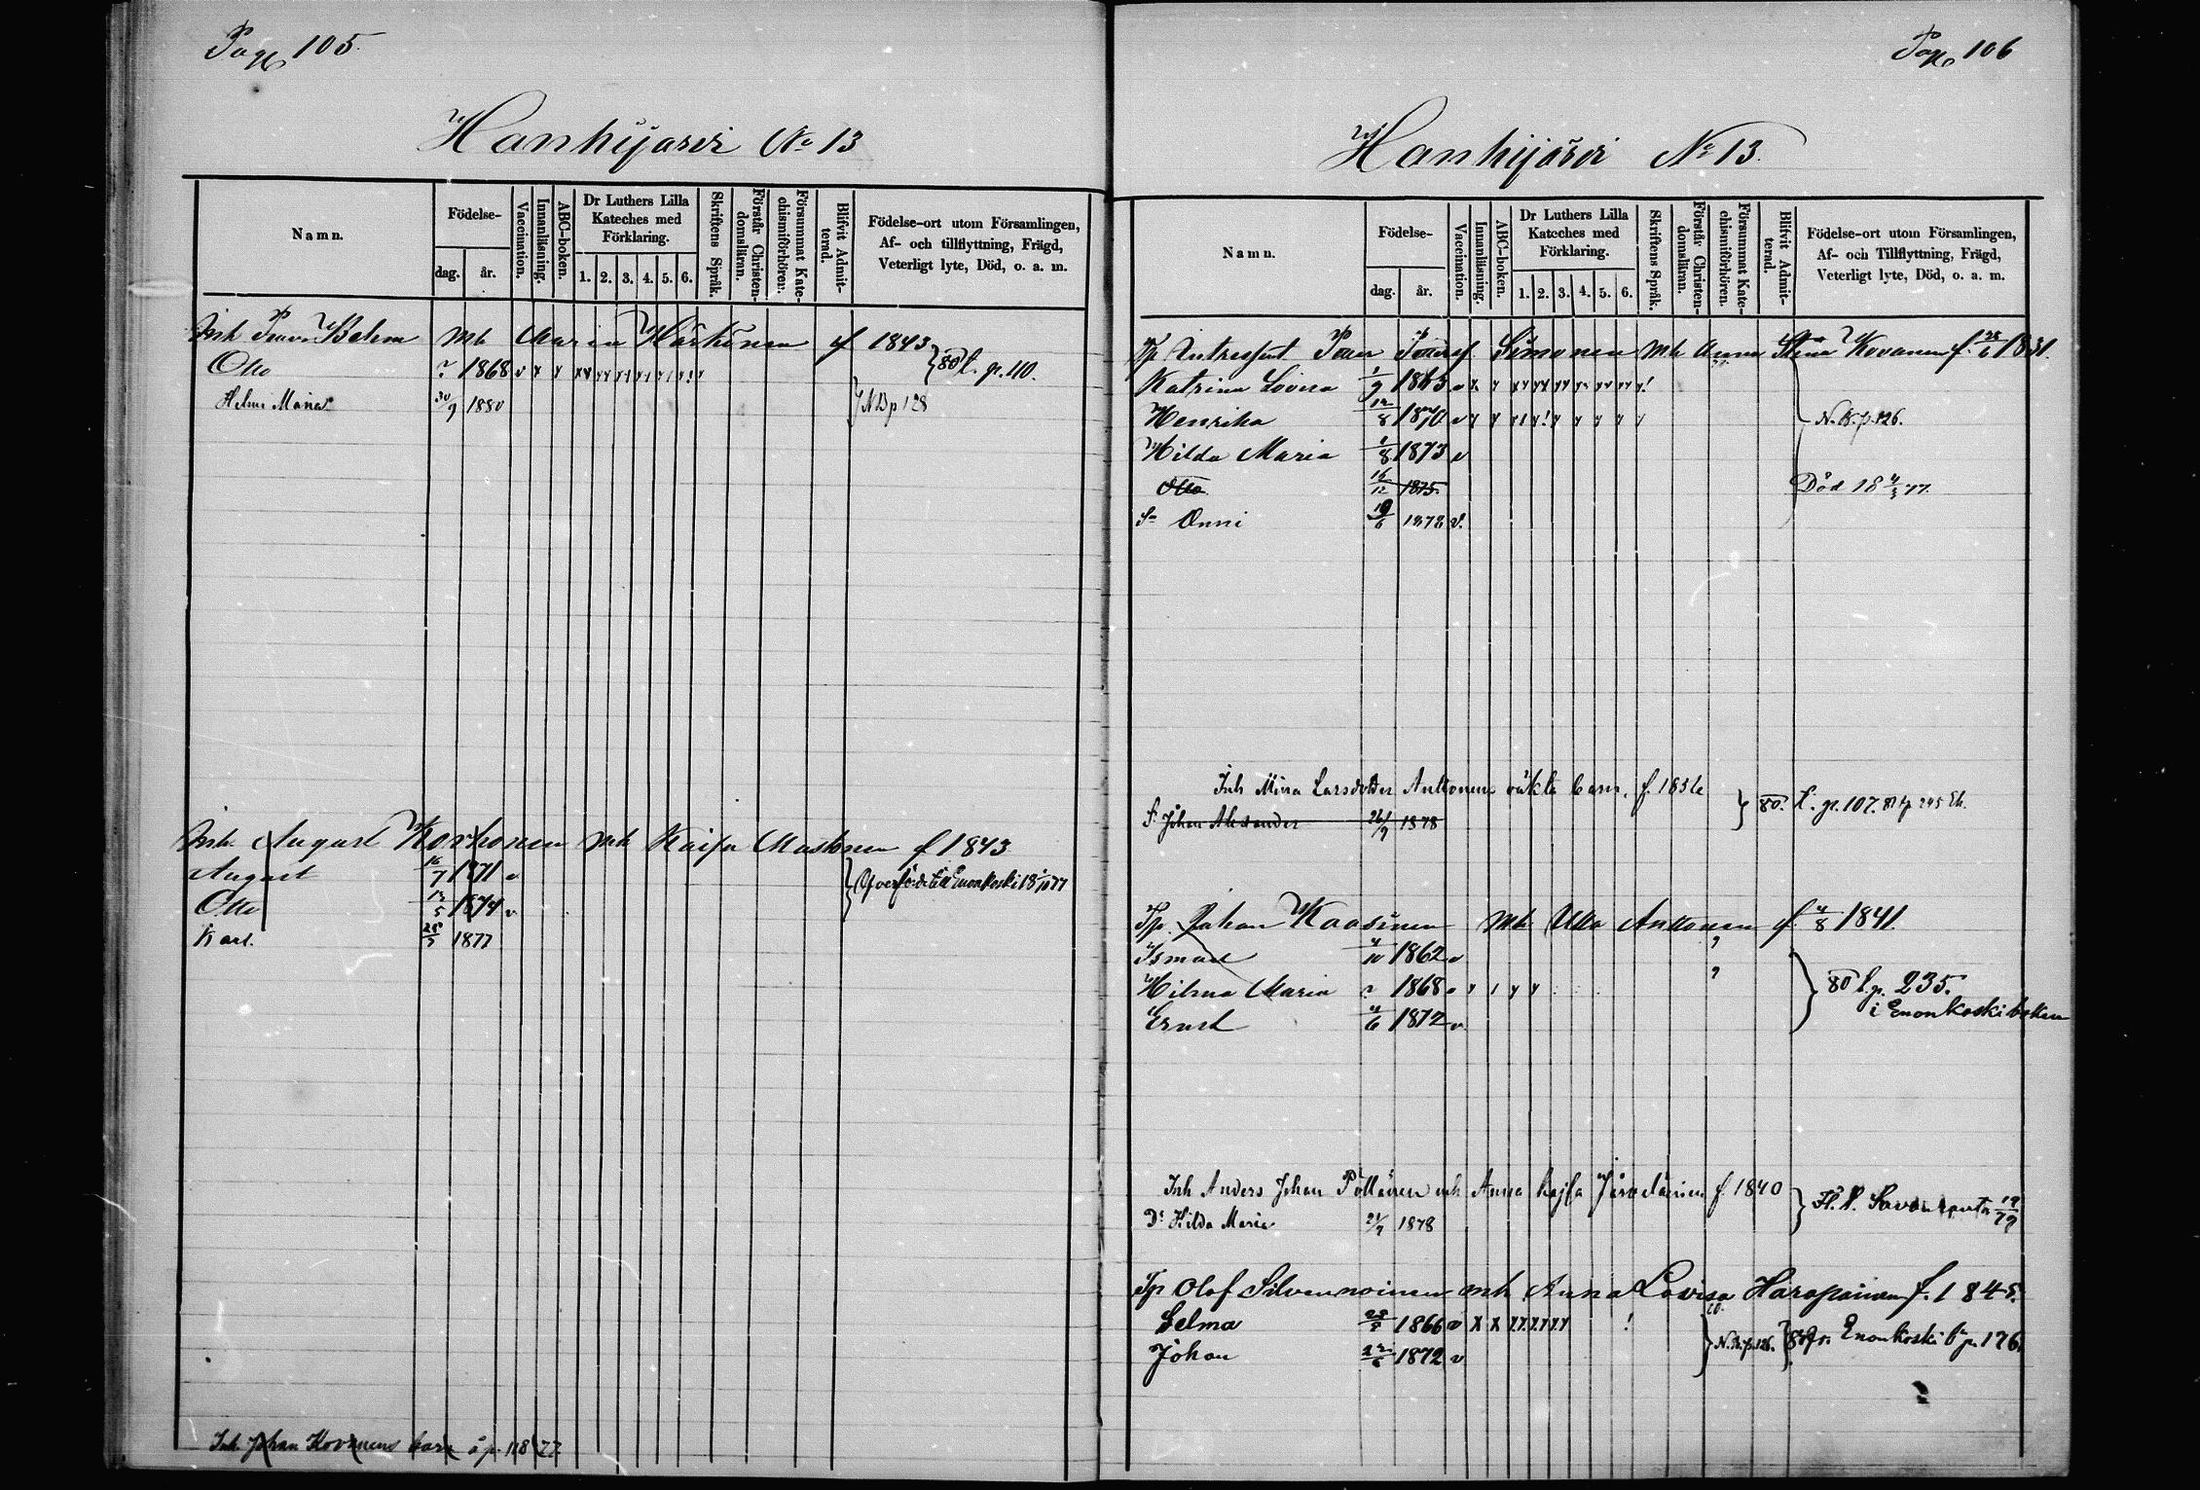 Page 105.
Hanhijärvi No 13
Namn.
Födelse-
dag.
år.
Vaccination.
Innanläsning.
ABC-boken.
Dr Luthers Lilla
Kateches med
Förklaring.
1. 2. 3. 4. 5. 6.
Skriftens Språk.
Förstår Christen-
domsläran.
Försummat Kate-
chismiförhören.
Blifvit Admit-
terad.
Födelse-ort utom Församlingen,
Af- och tillflyttning, Frägd,
Veterligt lyte, Död, o. a. m.
Inh Behm mh Maria Härkönen f 1843
Otto ? 1868 v 80 t. p. 110.
Helmi Maria 30/9 1880 N.B p 128
Inh. August Korhonen mh Kaisa Mustonen f 1843
August 16/7 1871 v Öfverförde till Enonkoski
Otto 12/5 1874 v
Karl. 28/7 1877
Inh. Johan Kovanens barn
Page 106
Hanhijärvi No 13.
Namn.
Födelse-
dag.
år.
Vaccination.
Innanläsning.
ABC-boken.
Dr Luthers Lilla
Kateches med
Förklaring.
1. 2. 3. 4. 5. 6.
Skriftens Språk.
Förstår Christen-
domsläran.
Försummat Kate-
chismiförhören.
Blifvit Admit-
terad.
Födelse-ort utom Församlingen,
Af- och Tillflyttning, Frägd,
Veterligt lyte, Död, o. a. m.
Simonen mh Anna Stina Kovanen f. 28/6 1831.
Katrina Lovisa 1/9 1863 v
Henrika 12/8 1870 v N.B. p. 126.
Hilda Maria 1/8 1873 v
Otto 16/12 1875. Död 18 4/3 77.
Sn Onni 19/6 1878 v.
Inh Miina Larsdotter Anttonens oäkta barn. f. 1856
S. Johan Alexander 26/9 1878 80. t. p. 107.
Tp. Johan Kaasinen mh Ulla Anttonen f. 4/8 1841.
Ismael 4/10 1862 v
Hilma Maria ? 1868 v 80 t. p. 235.
i Enonkoski boken
Ernst 4/6 1872 v
Inh Anders Johan Pöllänen mh Anna Kajsa f. 1840
Dr Hilda Maria 21/7 1878
Tp Olof Silvennoinen mh Anna Lovisa Haapainen f. 1845.
Selma 1866 v N.B. p. 126. Enonkoski b p. 176.
Johan 22/6 1872 v